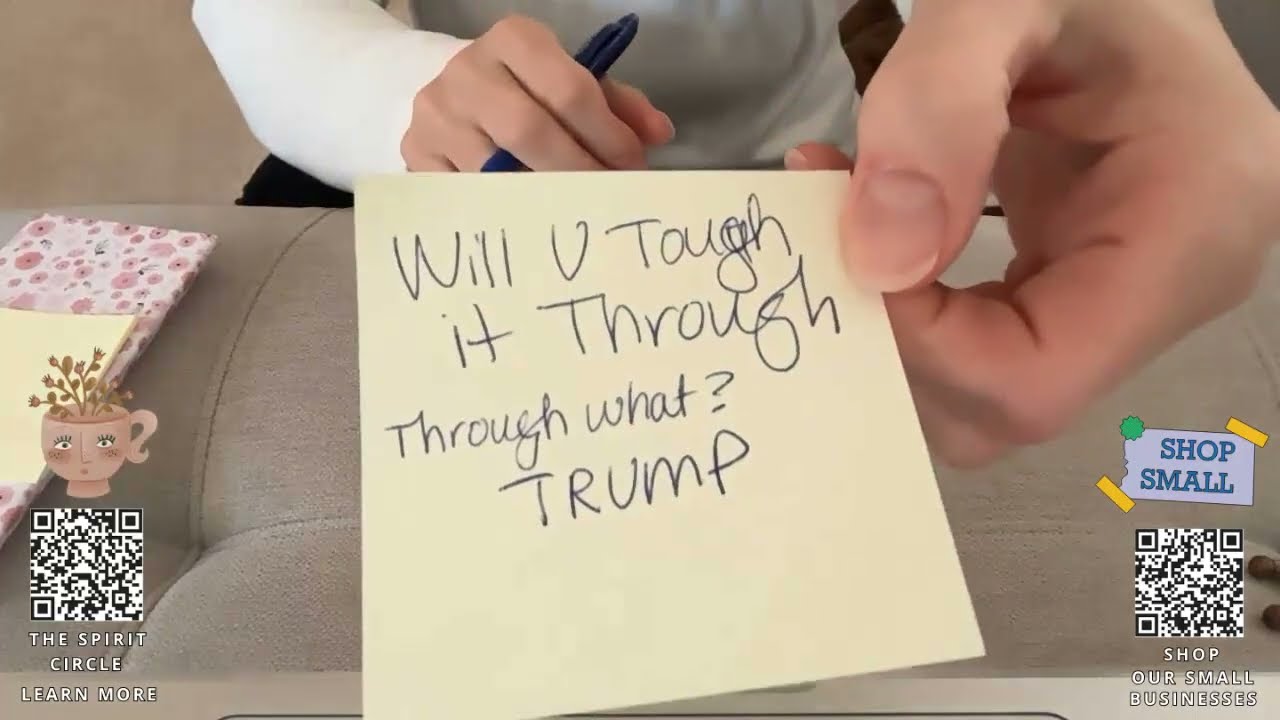 Will U Tough
it Through
Through what?
TRUMP
THE SPIRIT
CIRCLE
LEARN MORE
SHOP
SMALL
SHOP
OUR SMALL
BUSINESSES